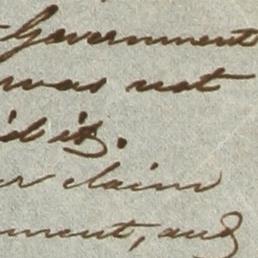 Government
was not
'd it.
er claim
ment, and